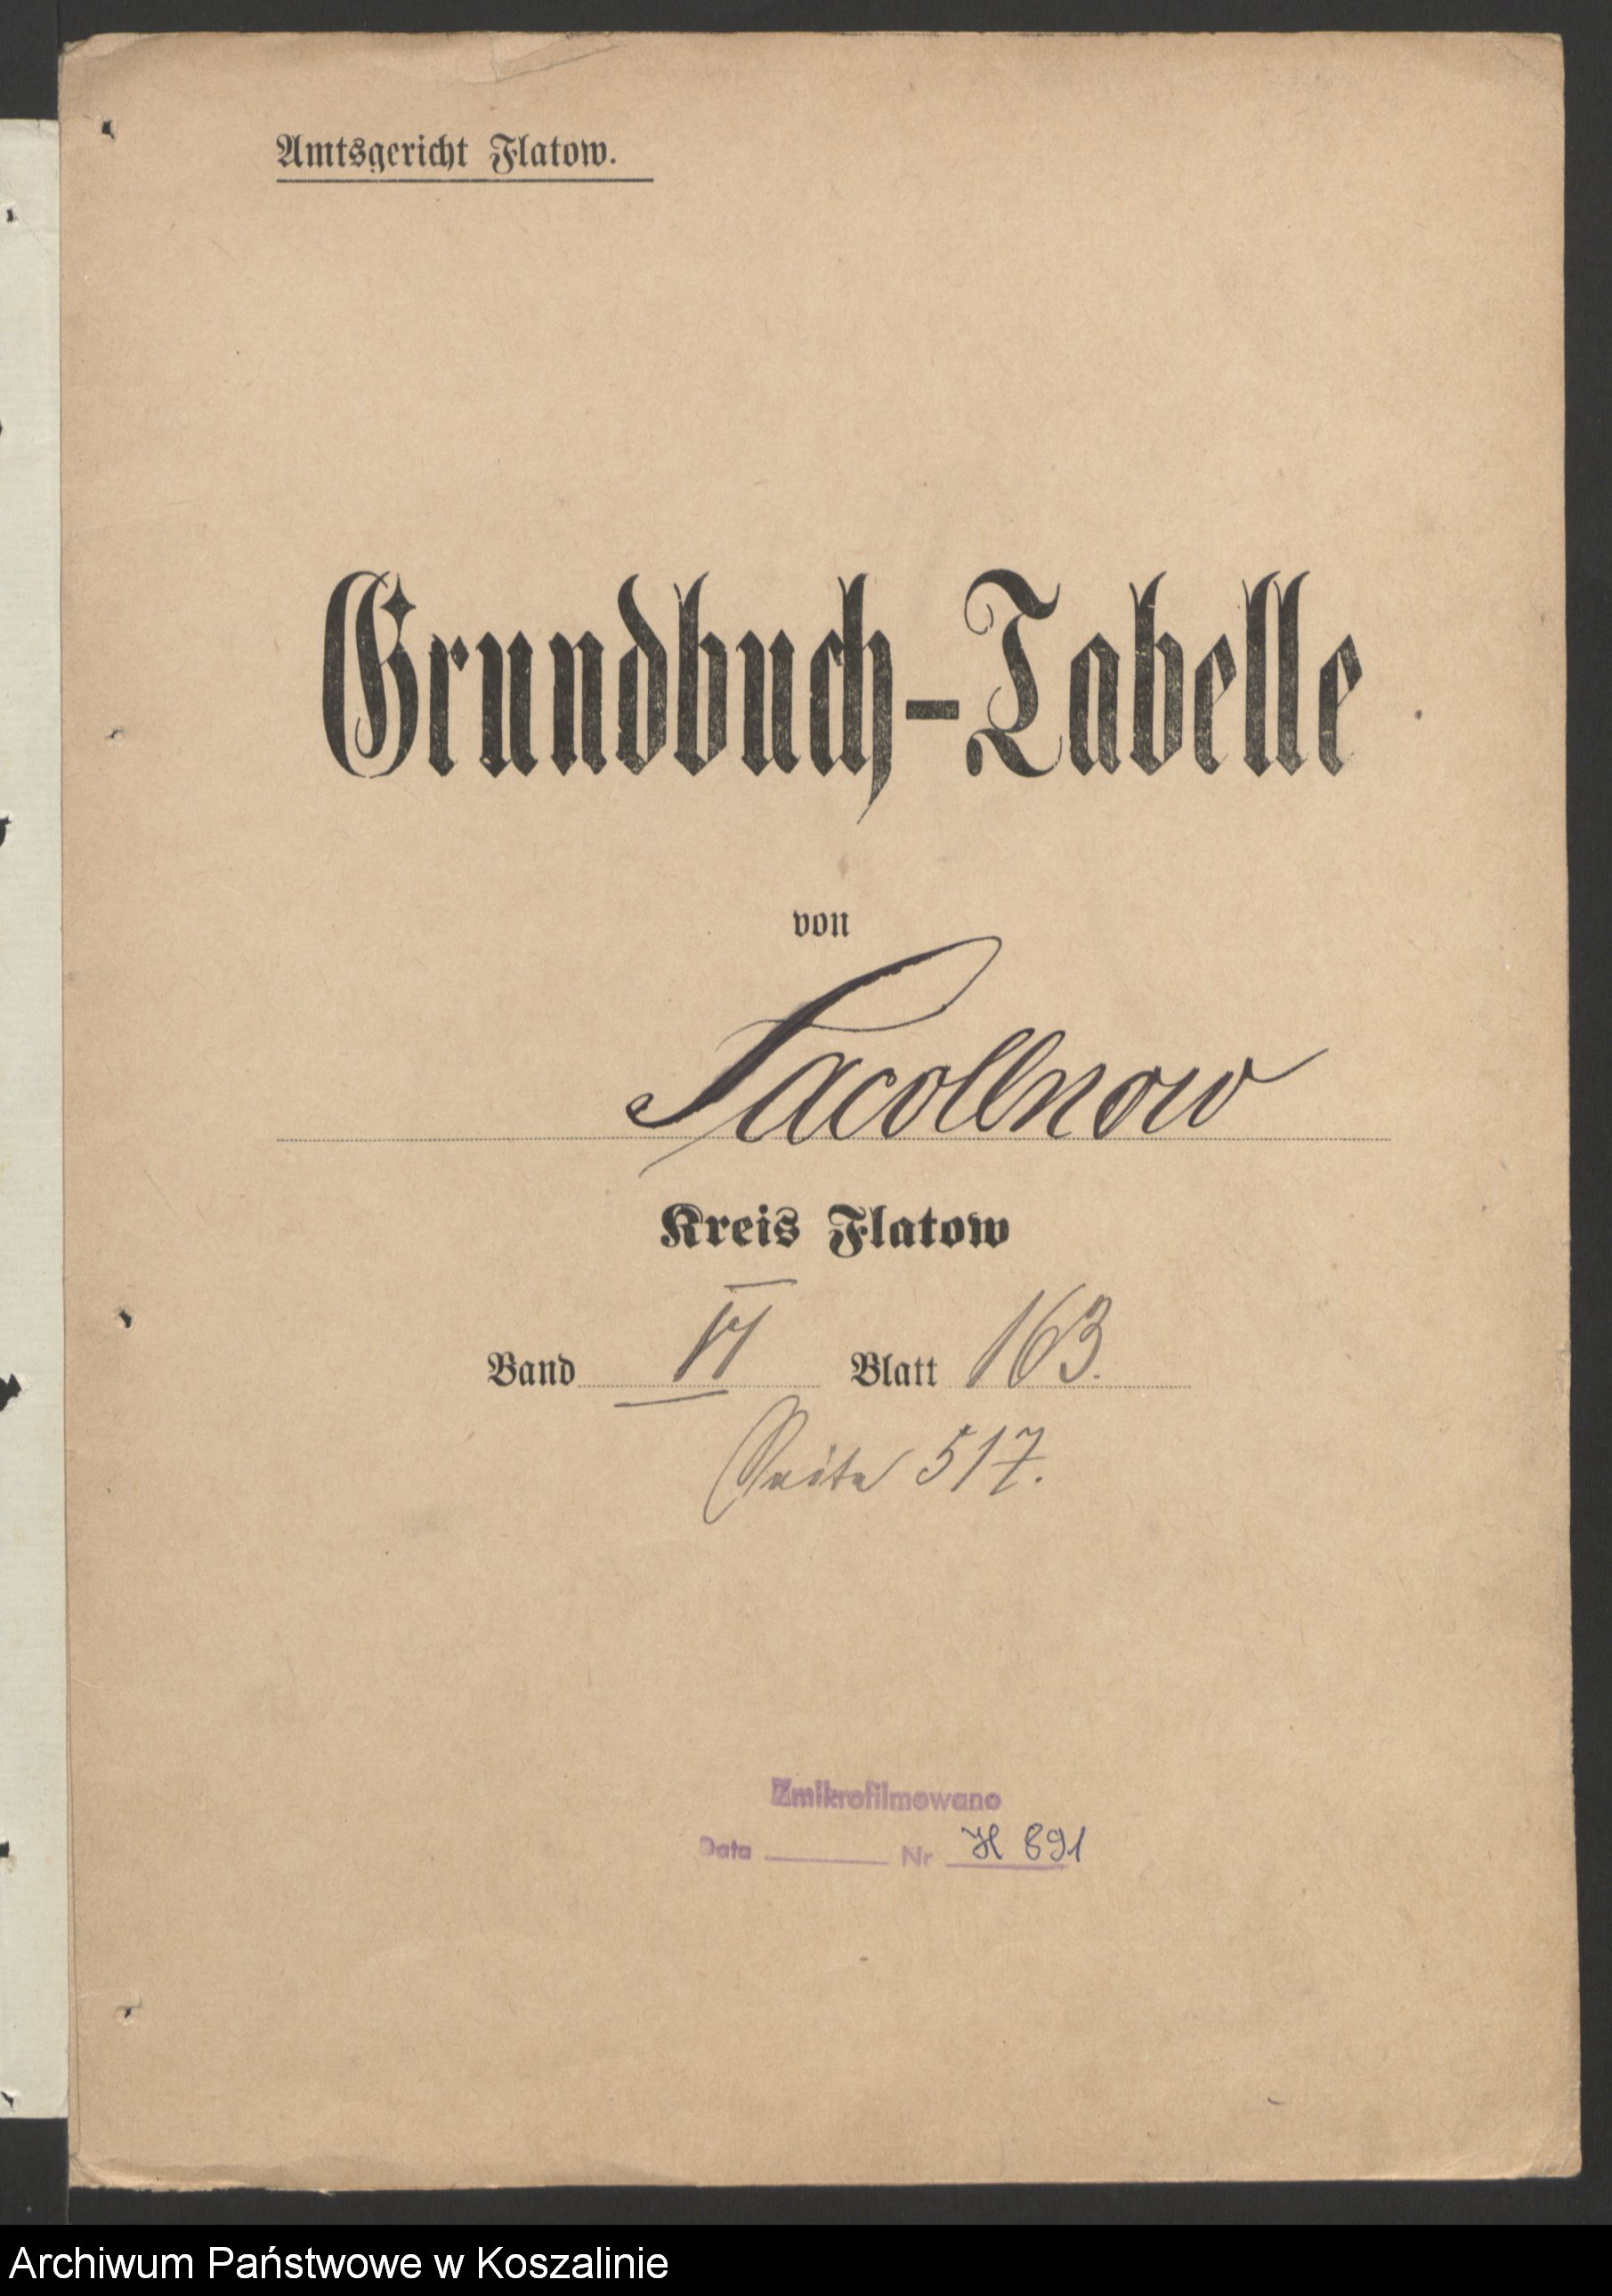 Amtsgericht Flatow.
Grundbuch-Tabelle
von
Sacollnow
Kreis Flatow
Band VI Blatt 163.
Seite 517.
Zmikrofilmowano
Data Nr H 891
Archiwum Państwowe w Koszalinie